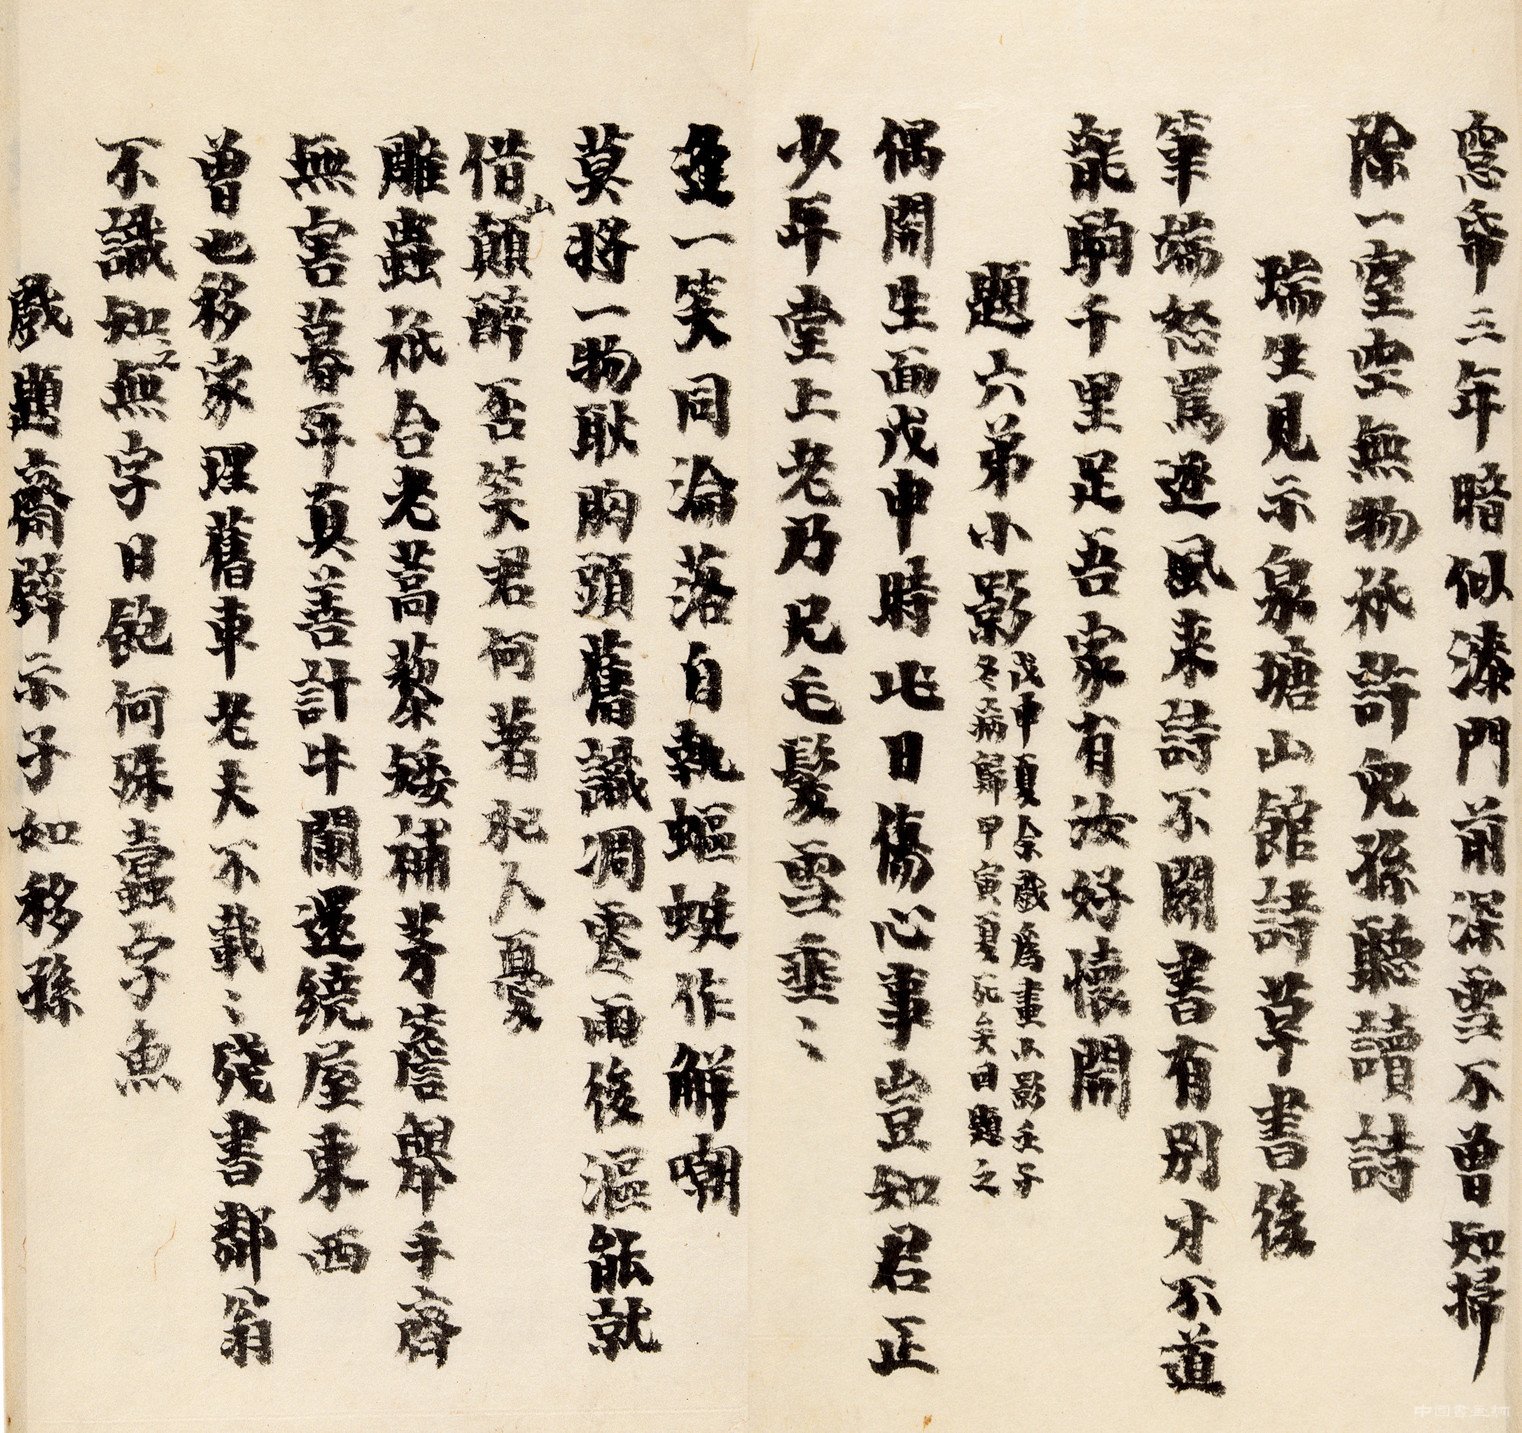 窻帋三年暗似漆門前深雪不曾知掃
除一室空無物祇許兒孫聽讀詩
瑞生見示泉塘山館詩草書後
筆端怒罵逐風來詩不關書有別才不道
龍駒千里足吾家有汝好懷開
題六弟小影
戊申夏余戲為畫小影壬子
冬病歸甲寅夏死矣因題之
偶開生面戊申時此日傷心事豈知君正
少年堂上老乃兄毛髮雪垂〻
逢一笑同淪落自執蝘蜓作解嘲
莫將一物耿胸頭舊識凋零雨後漚能就
借山顛醉否笑君何著杞人憂
雕蟲祇合老蒿藜矮補茅簷舉手齊
無害暮年真善計牛闌還繞屋東西
曾也移家理舊車老夫不載〻殘書鄰翁
不識知無字日飽何殊蠹字魚
戲題齋壁示子如移孫
中国書画網